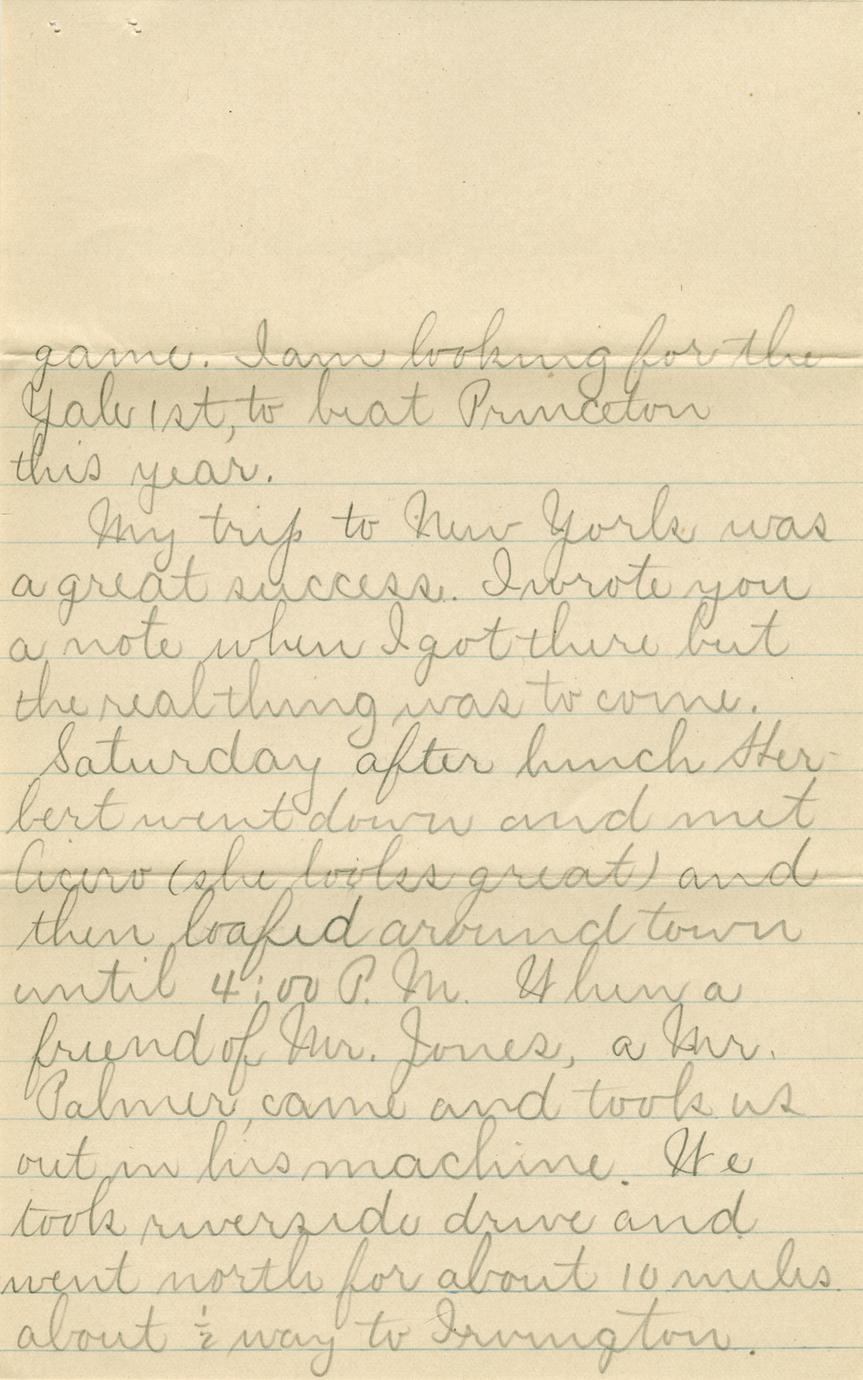 game. I am looking for the
Yale 1st, to beat Princeton
this year.
My trip to New York was
a great success. I wrote you
a note when I got there but
the real thing was to come.
Saturday after lunch Her-
bert went down and met
Cicero (she looks great) and
then loafed around town
until 4:00 P.M. When a
friend of Mr. Jones, a Mr.
Palmer, came and took us
out in his machine. We
took riverside drive and
went north for about 10 miles
about ½ way to Irvington.